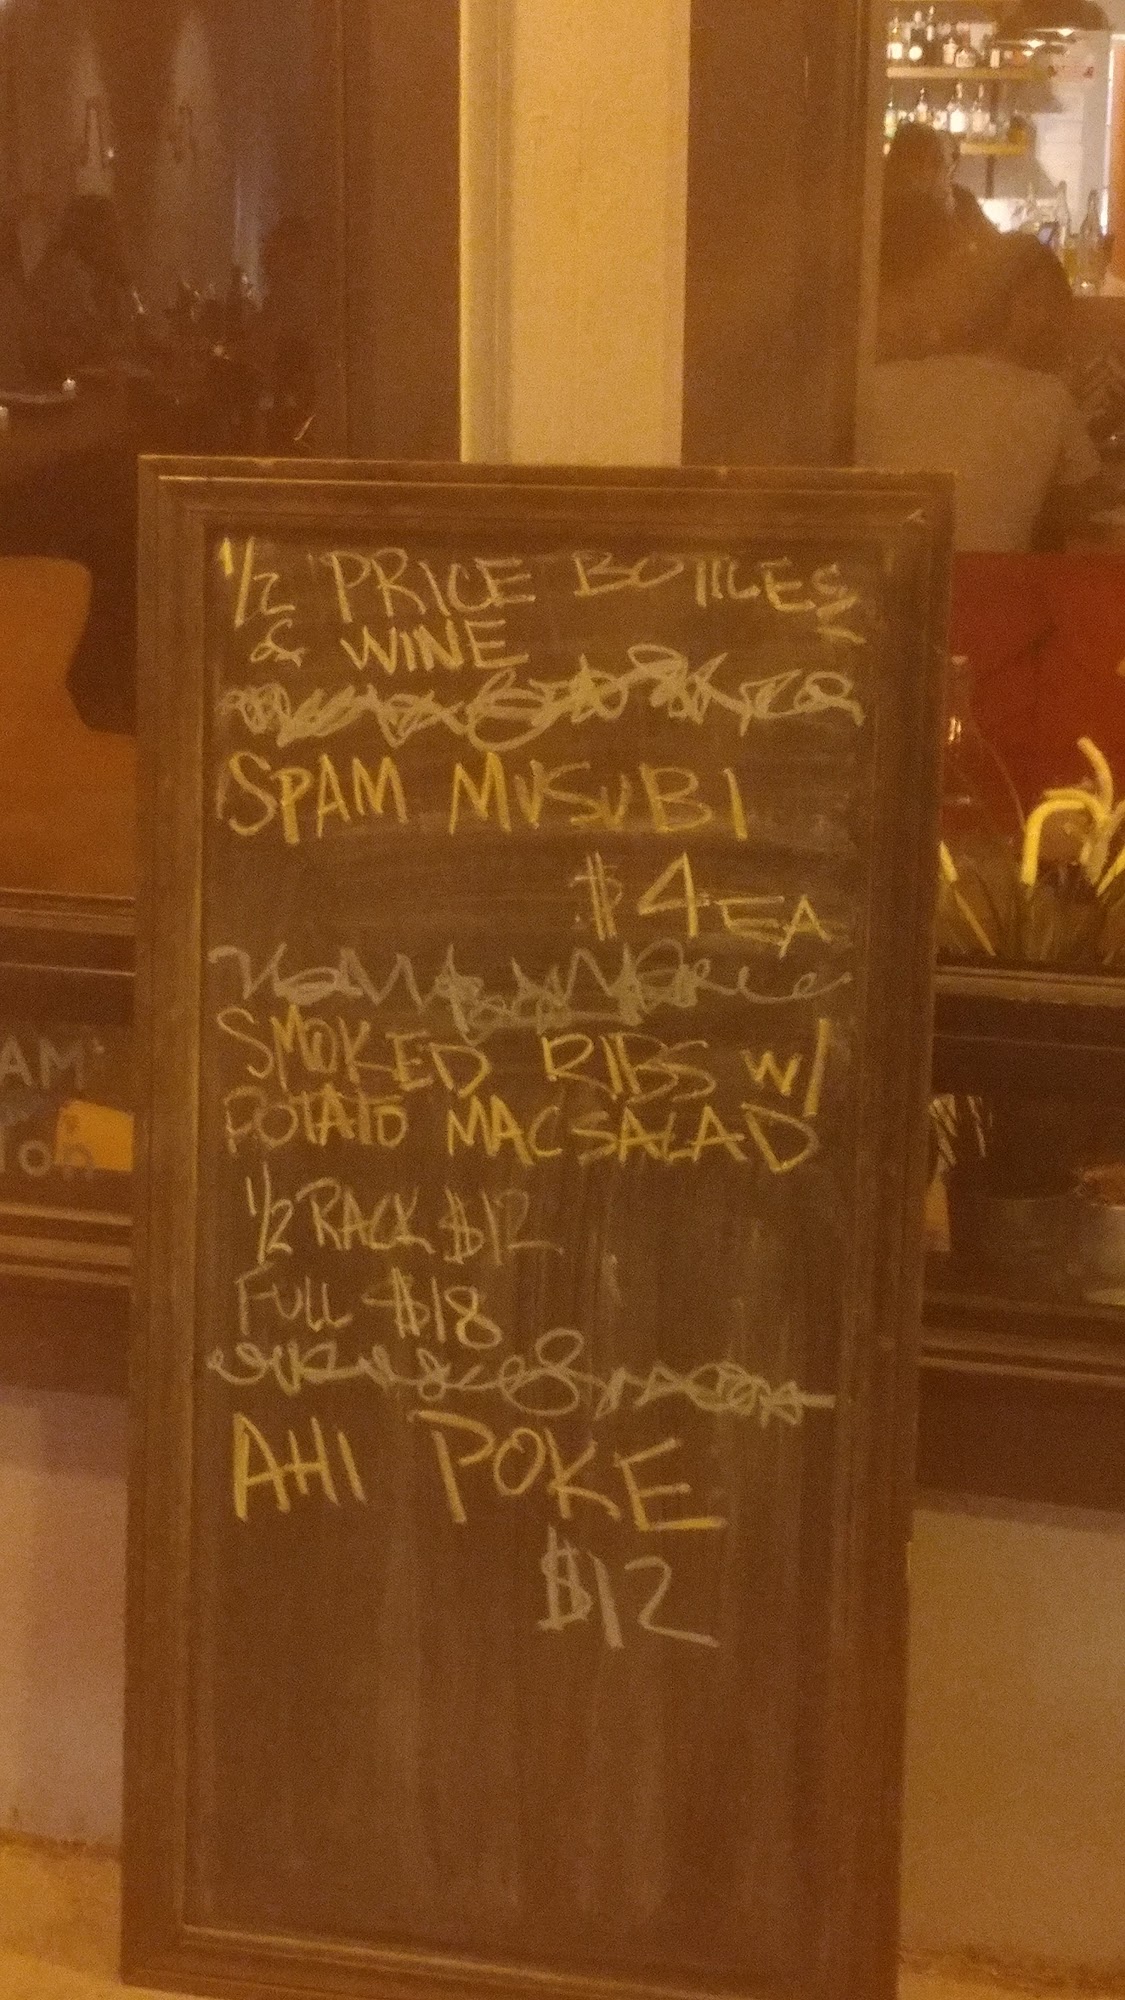 1/2 PRICE BOTTLES
& WINE
SPAM MUSUBI
$4 EA
SMOKED RIBS W/
POTATO MAC SALAD
1/2 RACK $12
FULL $18
AHI POKE
$12
AM
Ton